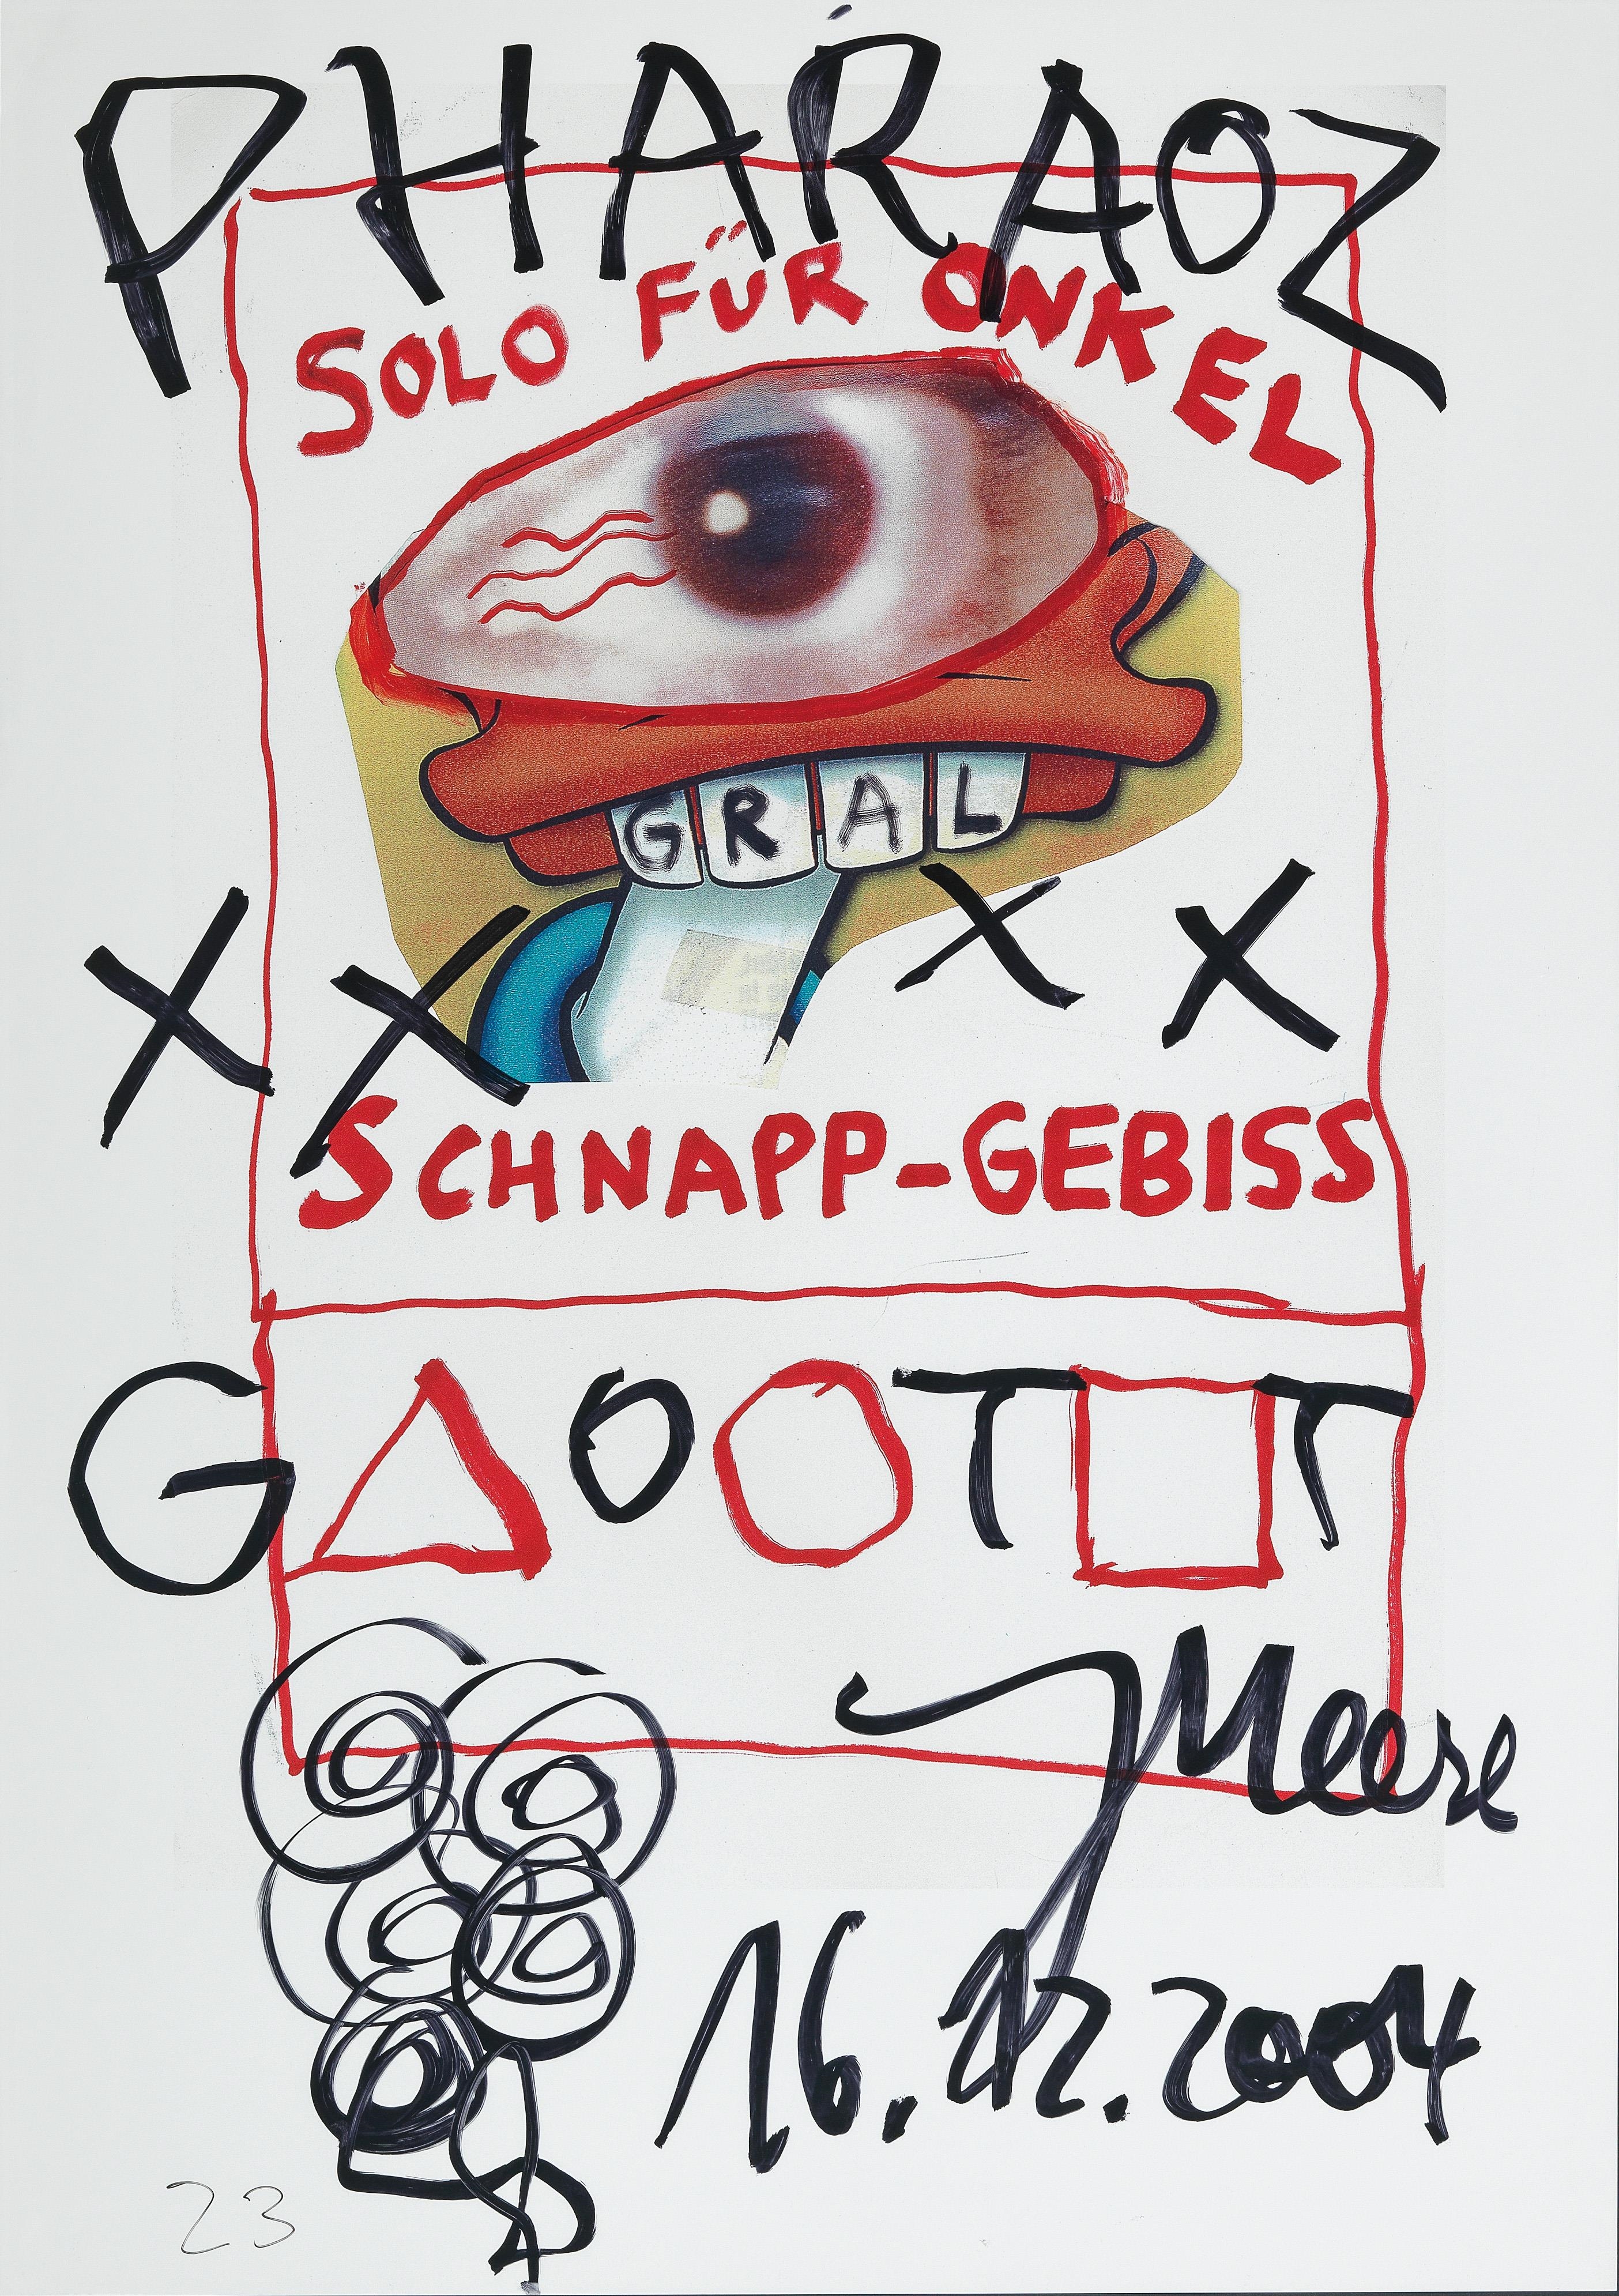 PHARAOZ
SOLO FÜR ONKEL
GRAL
X X X X
SCHNAPP-GEBISS
G△O○T□T
JMeese
16.12.2004
23